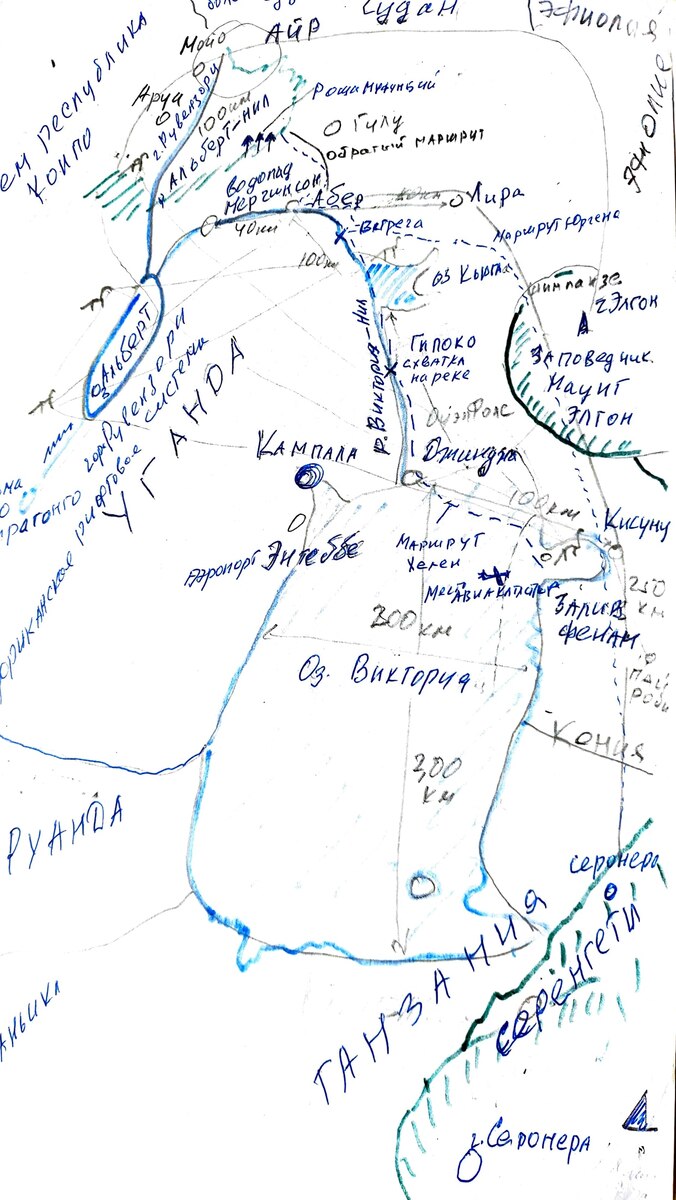 Судан
Эфиопия
АЙР
Мойо
Аруа
100 км
г. Рувензори
р. Альберт-Нил
Гулу
обратный маршрут
ем Республика
Конго
водопад
Мерчинсон
Абер
Лира
40 км
Ватрега
Маршрут Юргена
100 км
оз Кьога
шимпанзе
г Элгон
Заповедник
Маунт
Элгон
оз Альберт
р. Виктория-Нил
Гипопо
схватка
на реке
Оуэн Фолс
Джинджа
горы Рувензори
рифтовая система
УГАНДА
Кампала
100 км
Кисуму
аэропорт Энтеббе
Маршрут
Хелен
Место авиакатастр
Залив
250
км
300 км
Оз. Виктория
Кения
300
км
РУАНДА
Серонера
ТАНЗАНИЯ
Серенгети
г. Серонера